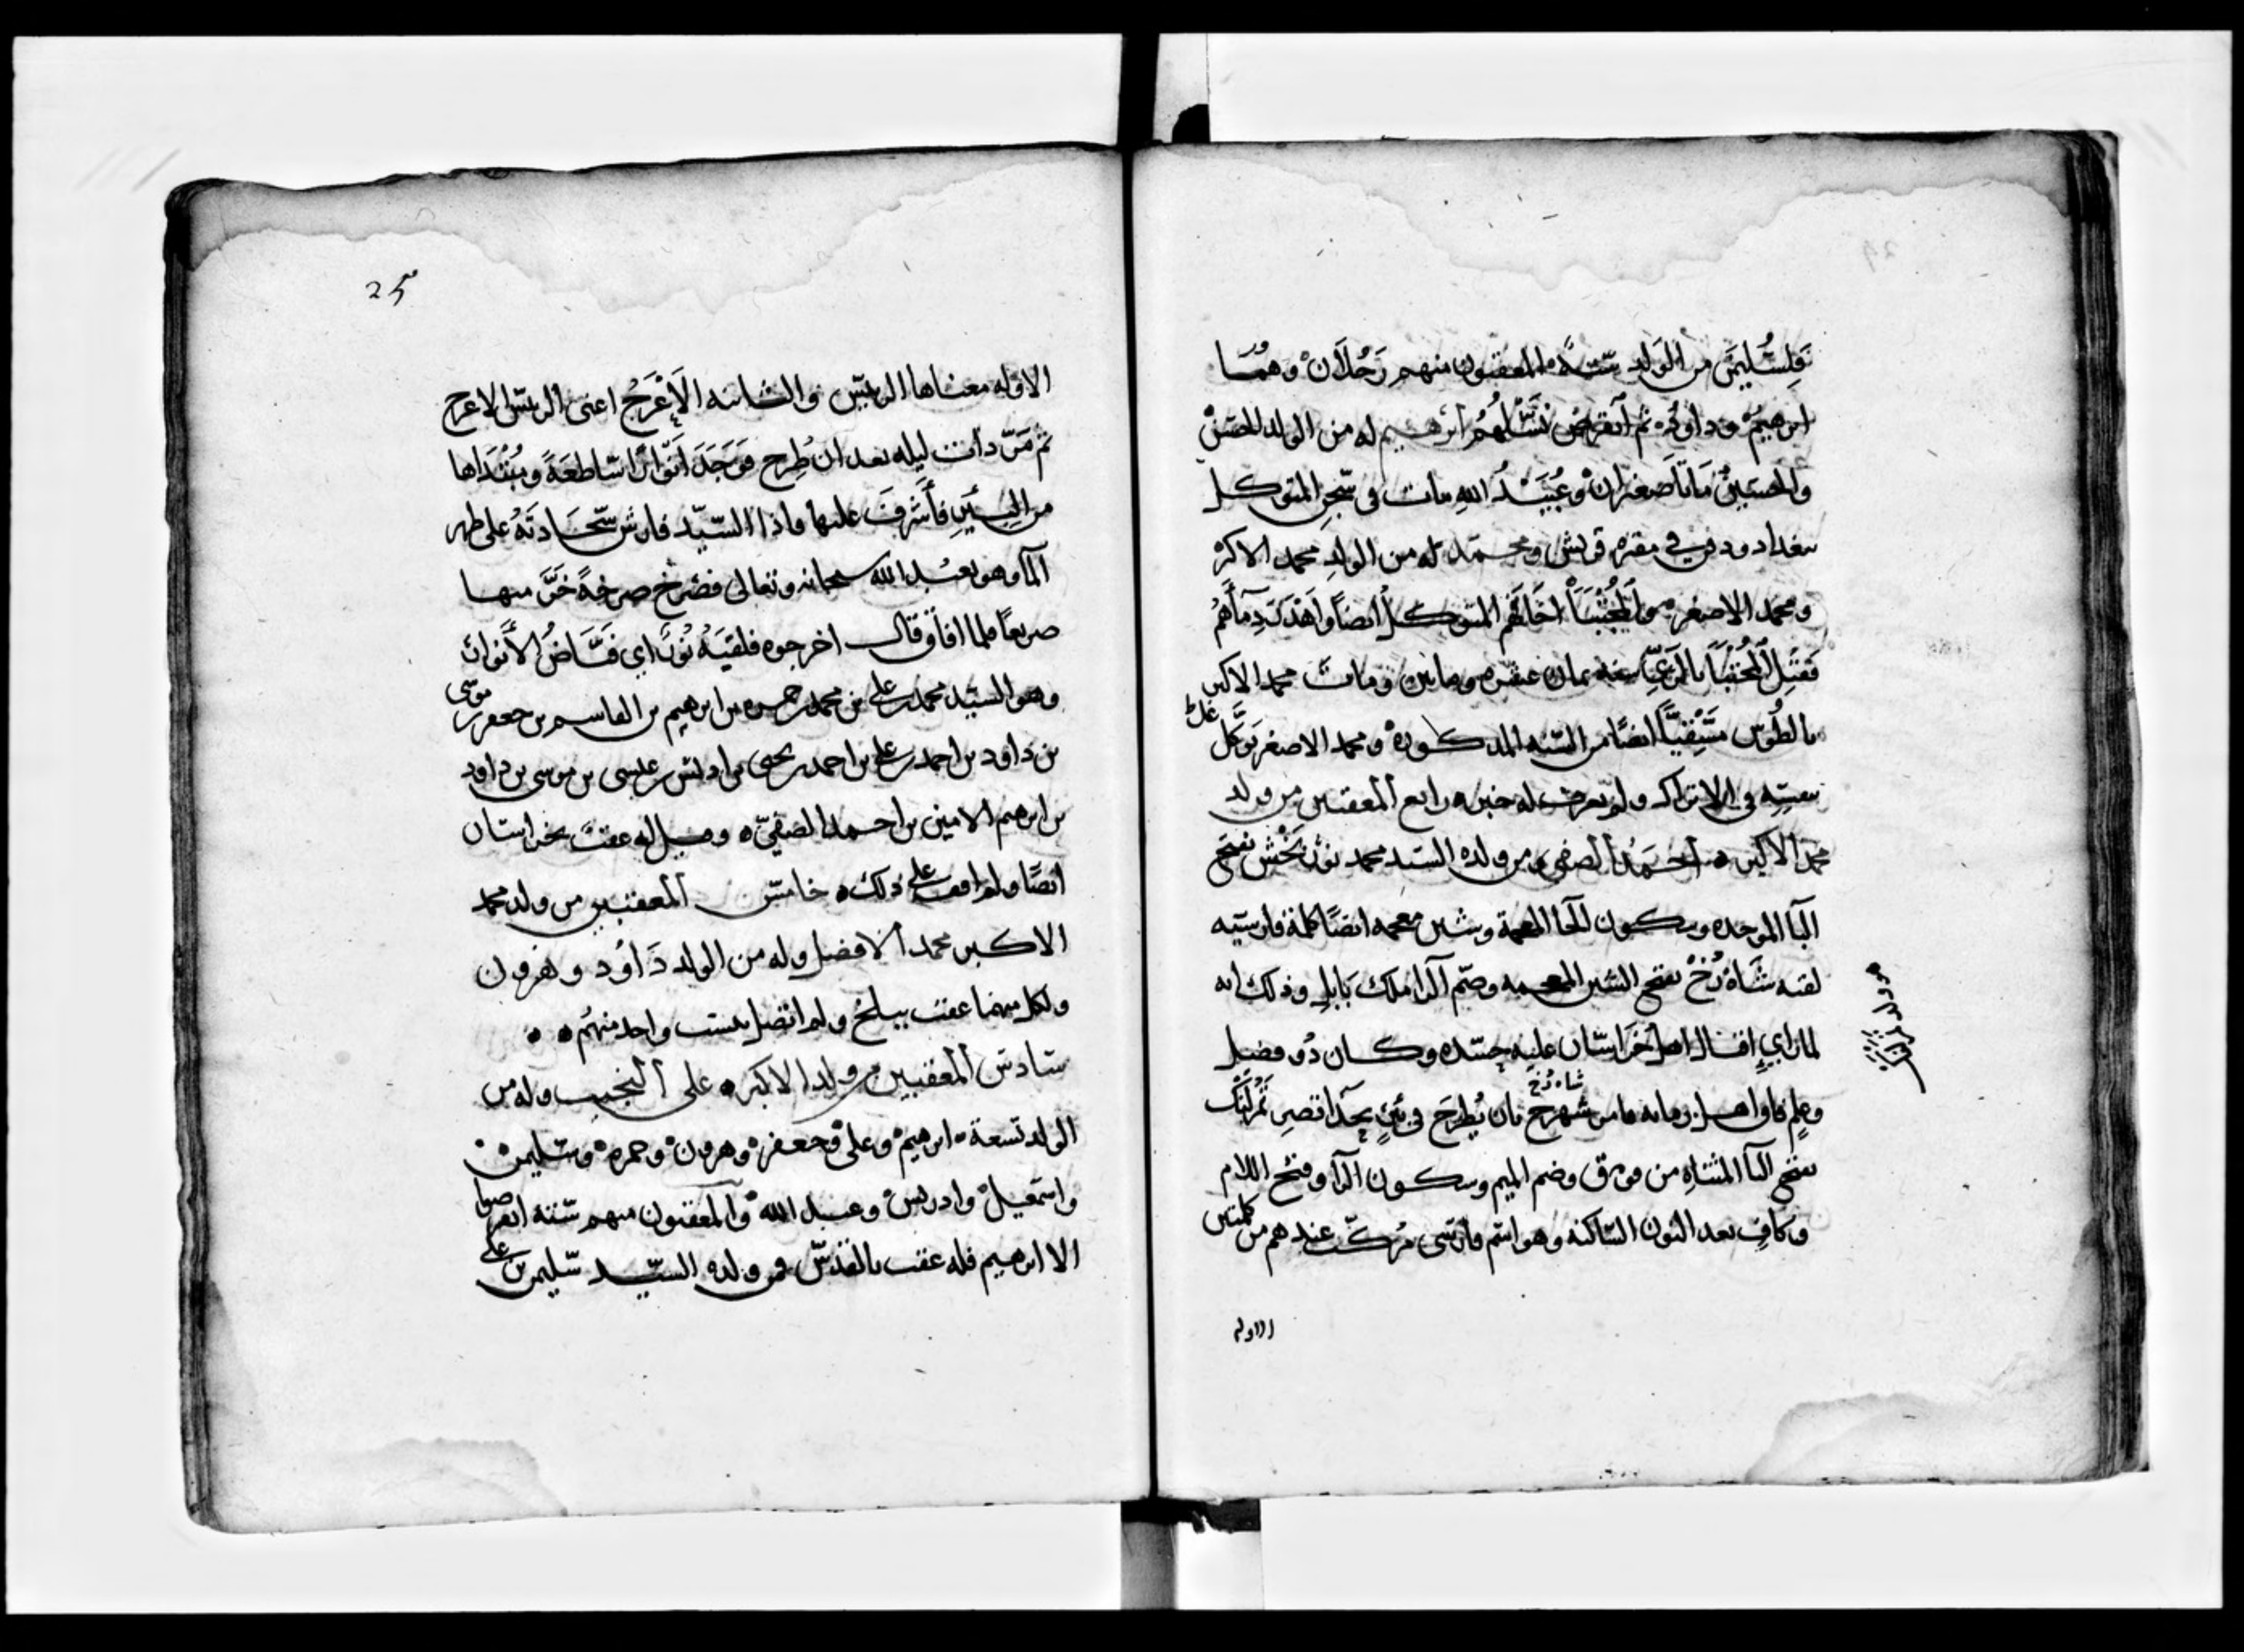 فلسليمن من الولد ستة المعقبون منهم رجلان وهما
ابرهيم وداود ثم انقرض نسلهم ابرهيم له من الولد الحسن
والحسين ماتا صغيران وعبيد الله مات في سجن المتوكل
ببغداد ودفن في مقبرة قريش ومحمد له من الولد محمد الاكبر
ومحمد الاصغر والمجتبا اخافهم المتوكل ايضا واهدر دمآهم
فقتل المجتبا سنه ثمان عشره ومايتين ومات محمد الاكبر
بالطوس ايضا من السنه المذكورة ومحمد الاصغر توغل
في الاتراك ولم يعرف له خبر رابع المعقبين من ولد
محمد الاكبر احمد الصفي ومن ولده السيد محمد نور بخش بفتح
البا الموحده وسكون الخا المعجمة وشين معجمه ايضا كلمة فارسيه
لقبه شاه رخ بفتح الشين المعجمه وضم الرا ملك بابل وذلك انه
لما راي اقبال اهل خراسان عليه حسده وكان ذو فضل
وعلم فاق اهل زمانه فامر شاه رخ بان يطرح في بئر تمرلنك
بفتح التا المثناة من فوق وضم الميم وسكون الرآ وفتح اللام
وكاف بعد النون الساكنه وهو اسم فارسي مركب عندهم من كلمتين
الاوله
25
الاوله معناها الريس والثانيه الاعرج اعني الريس الاعرج
ثم مر ذات ليله بعد ان طرح فوجد انوارا ساطعة ومبداها
من البئر فأشرف عليها واذا السيد فارش سجادته على ظهر
المآ وهو يعبد الله سبحانه وتعالى فصرخ صرخة خر منها
صريعا فلما افاق قال اخرجوه فلقبه نور اي فياض الأنوار
وهو السيد محمد بن علي بن محمد بن حمزه بن ابرهيم بن القاسم بن جعفر بن موسى
بن داود بن احمد بن علي بن احمد بن يحيى بن ادريس بن عيسى بن موسى بن داود
بن ابرهيم الامين بن احمد الصفي وقيل له عقب بخراسان
ايضا ولم اقف على ذلك خامس المعقبين من ولد محمد
الاكبر محمد الافضل وله من الولد داود وهرون
ولكل منهما عقب ببلخ ولم اتصل بنسب واحد منهم
سادس المعقبين من ولد الاكبر علي النجيب وله من
الولد تسعة ابرهيم وعلي وجعفر وهرون وحمزه وسليمن
واسمعيل وادريس وعبد الله والمعقبون منهم ستة انقرضوا
الا ابرهيم فله عقب بالقدس فمن ولده السيد سليمن بن علي